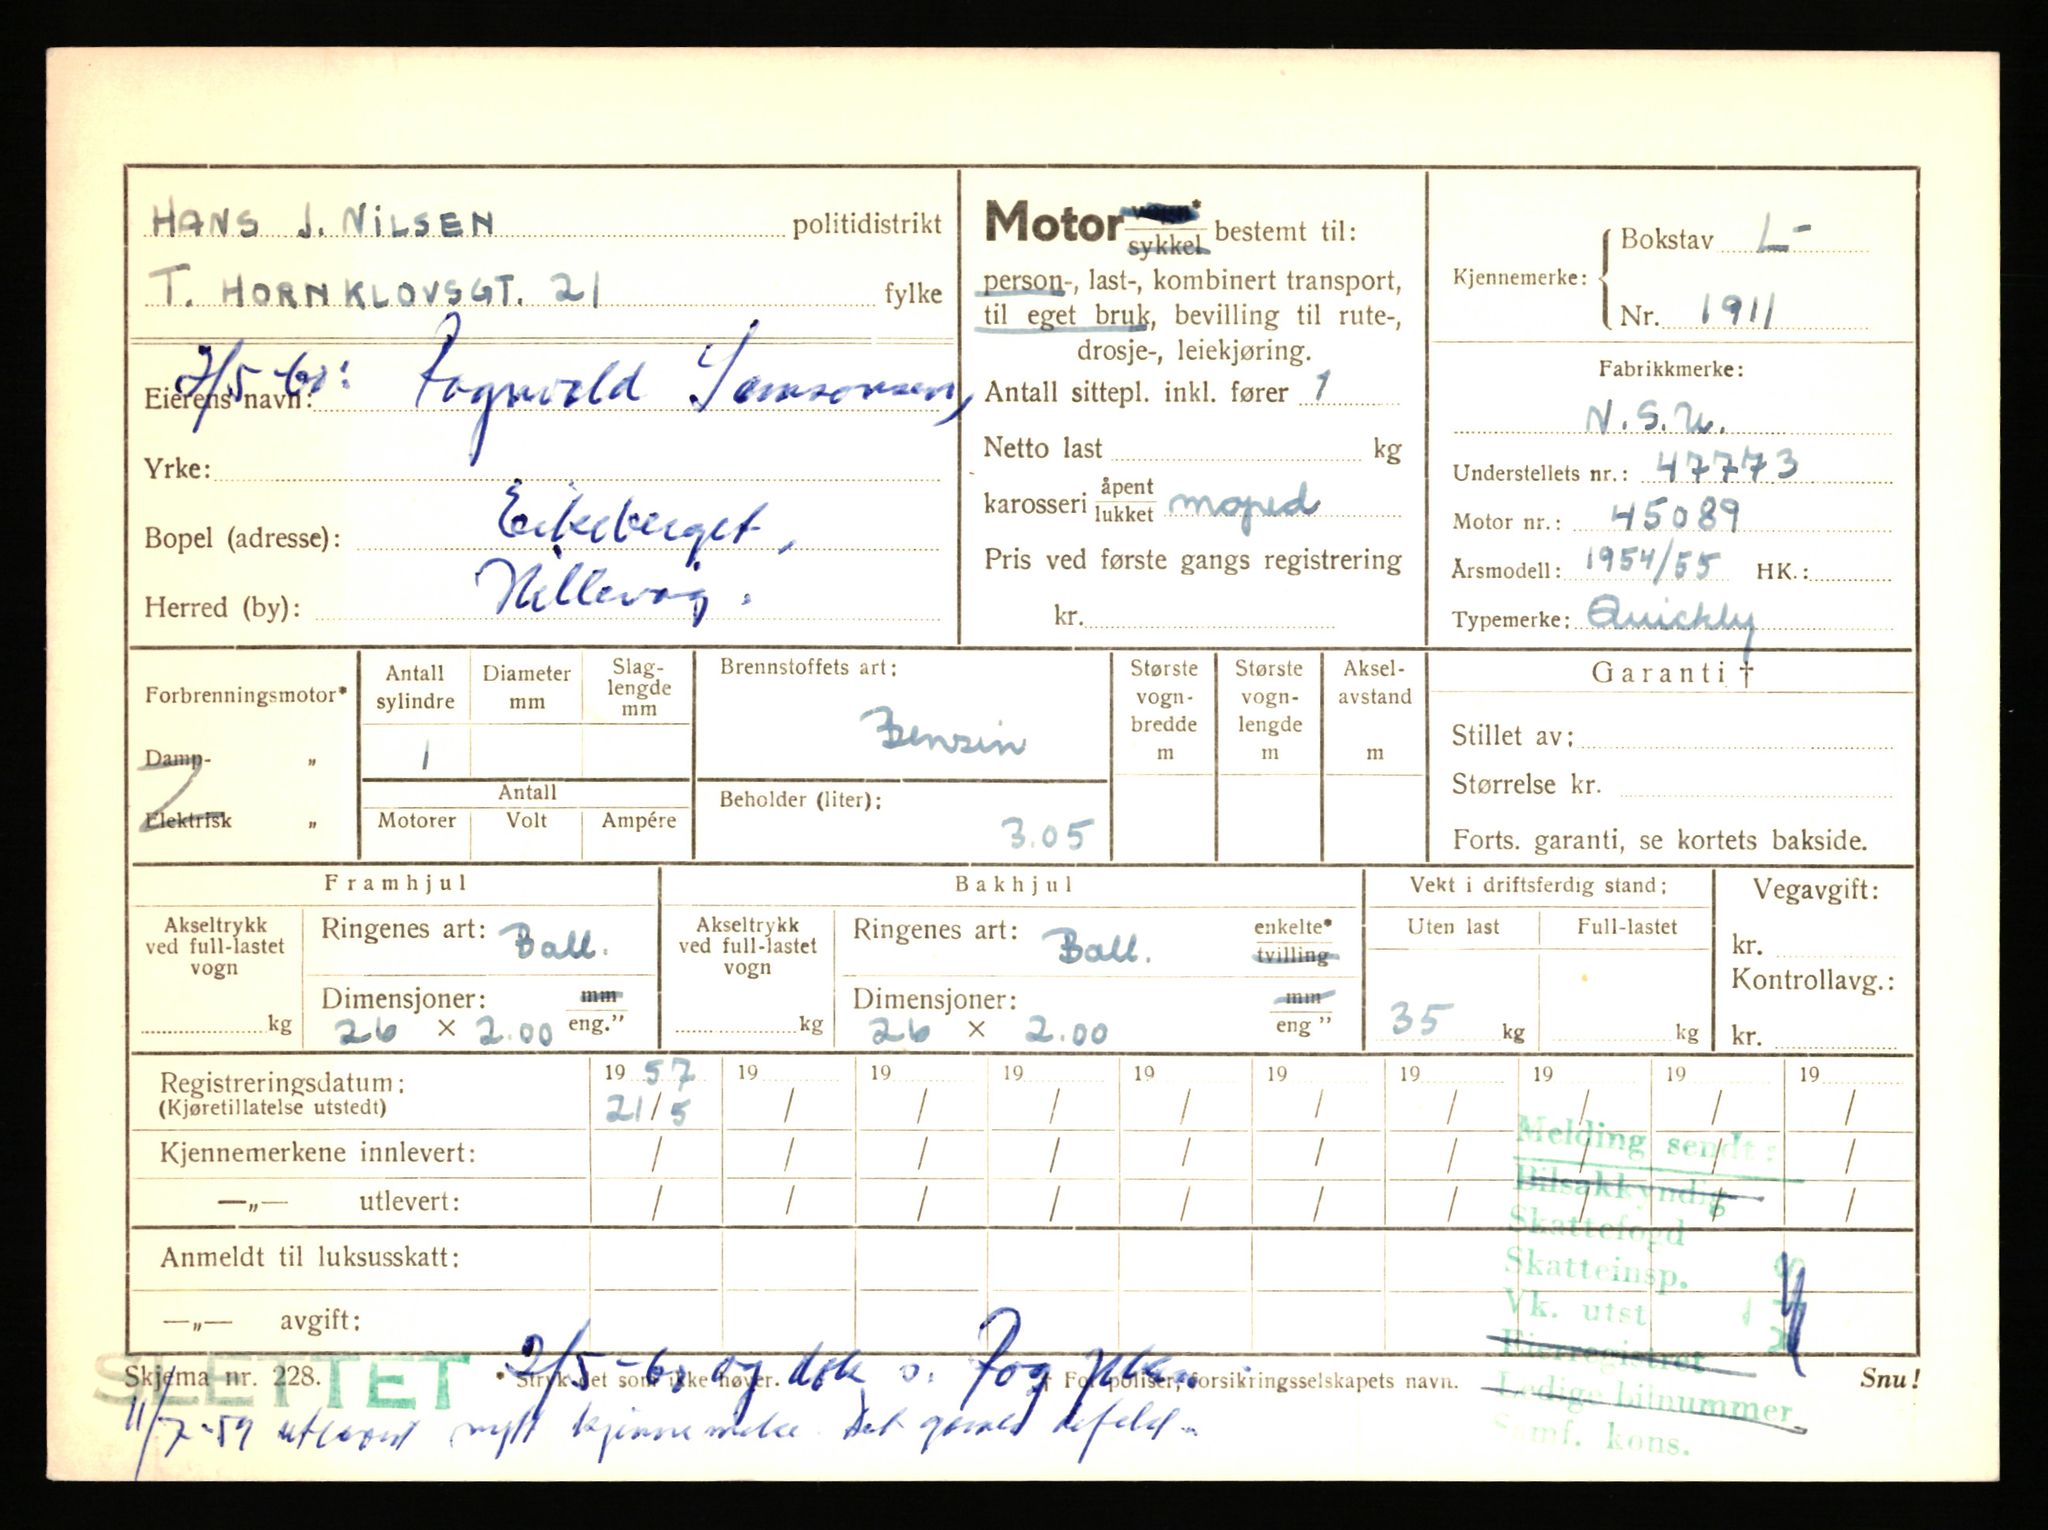 HANS J. NILSEN politidistrikt
T. HORNKLOVSGT. 21 fylke
2/5-60: Rognvald Samsonsen,
Eierens navn:
Yrke:
Bopel (adresse): Eikeberget,
Herred (by): Hillevåg.
Motor vogn* sykkel bestemt til:
person-, last-, kombinert transport,
til eget bruk, bevilling til rute-,
drosje-, leiekjøring.
Antall sittepl. inkl. fører 1
Netto last kg
karosseri åpent lukket moped
Pris ved første gangs registrering
kr.
Kjennemerke: Bokstav L-
Nr. 1911
Fabrikkmerke:
N.S.U.
Understellets nr.: 47773
Motor nr.: 45089
Årsmodell: 1954/55 HK.:
Typemerke: Quickly
Forbrenningsmotor*
Damp- „
Elektrisk „
Antall sylindre
Diameter mm
Slag-
lengde
mm
1
Antall
Motorer Volt Ampére
Brennstoffets art:
Bensin
Beholder (liter):
3.05
Største
vogn-
bredde
m
Største
vogn-
lengde
m
Aksel-
avstand
m
Garanti †
Stillet av:
Størrelse kr.
Forts. garanti, se kortets bakside.
Framhjul
Akseltrykk
ved full-lastet
vogn
kg
Ringenes art: Ball.
Dimensjoner: mm
26 × 2.00 eng."
Bakhjul
Akseltrykk
ved full-lastet
vogn
kg
Ringenes art: Ball. enkelte*
tvilling
Dimensjoner: mm
26 × 2.00 eng "
Vekt i driftsferdig stand:
Uten last Full-lastet
35 kg kg
Vegavgift:
kr.
Kontrollavg.:
kr.
Registreringsdatum: 19 57 19 19 19 19 19 19 19 19 19
(Kjøretillatelse utstedt) 21/5 / / / / / / / / /
Kjennemerkene innlevert: / / / / / / / / / /
—„— utlevert: / / / / / / / / / /
Anmeldt til luksusskatt:
—„— avgift:
Melding sendt:
Bilsakkyndig
Skattefogd
Skatteinsp.
Vk. utst
Eierregistret
Ledige bilnummer
Samf. kons.
SLETTET
Skjema nr. 228. * Stryk det som ikke høver. † For poliser, forsikringsselskapets navn. Snu!
2/5-60 og dok
11/7-59 utlevert nytt kjennemerke. Det gamle